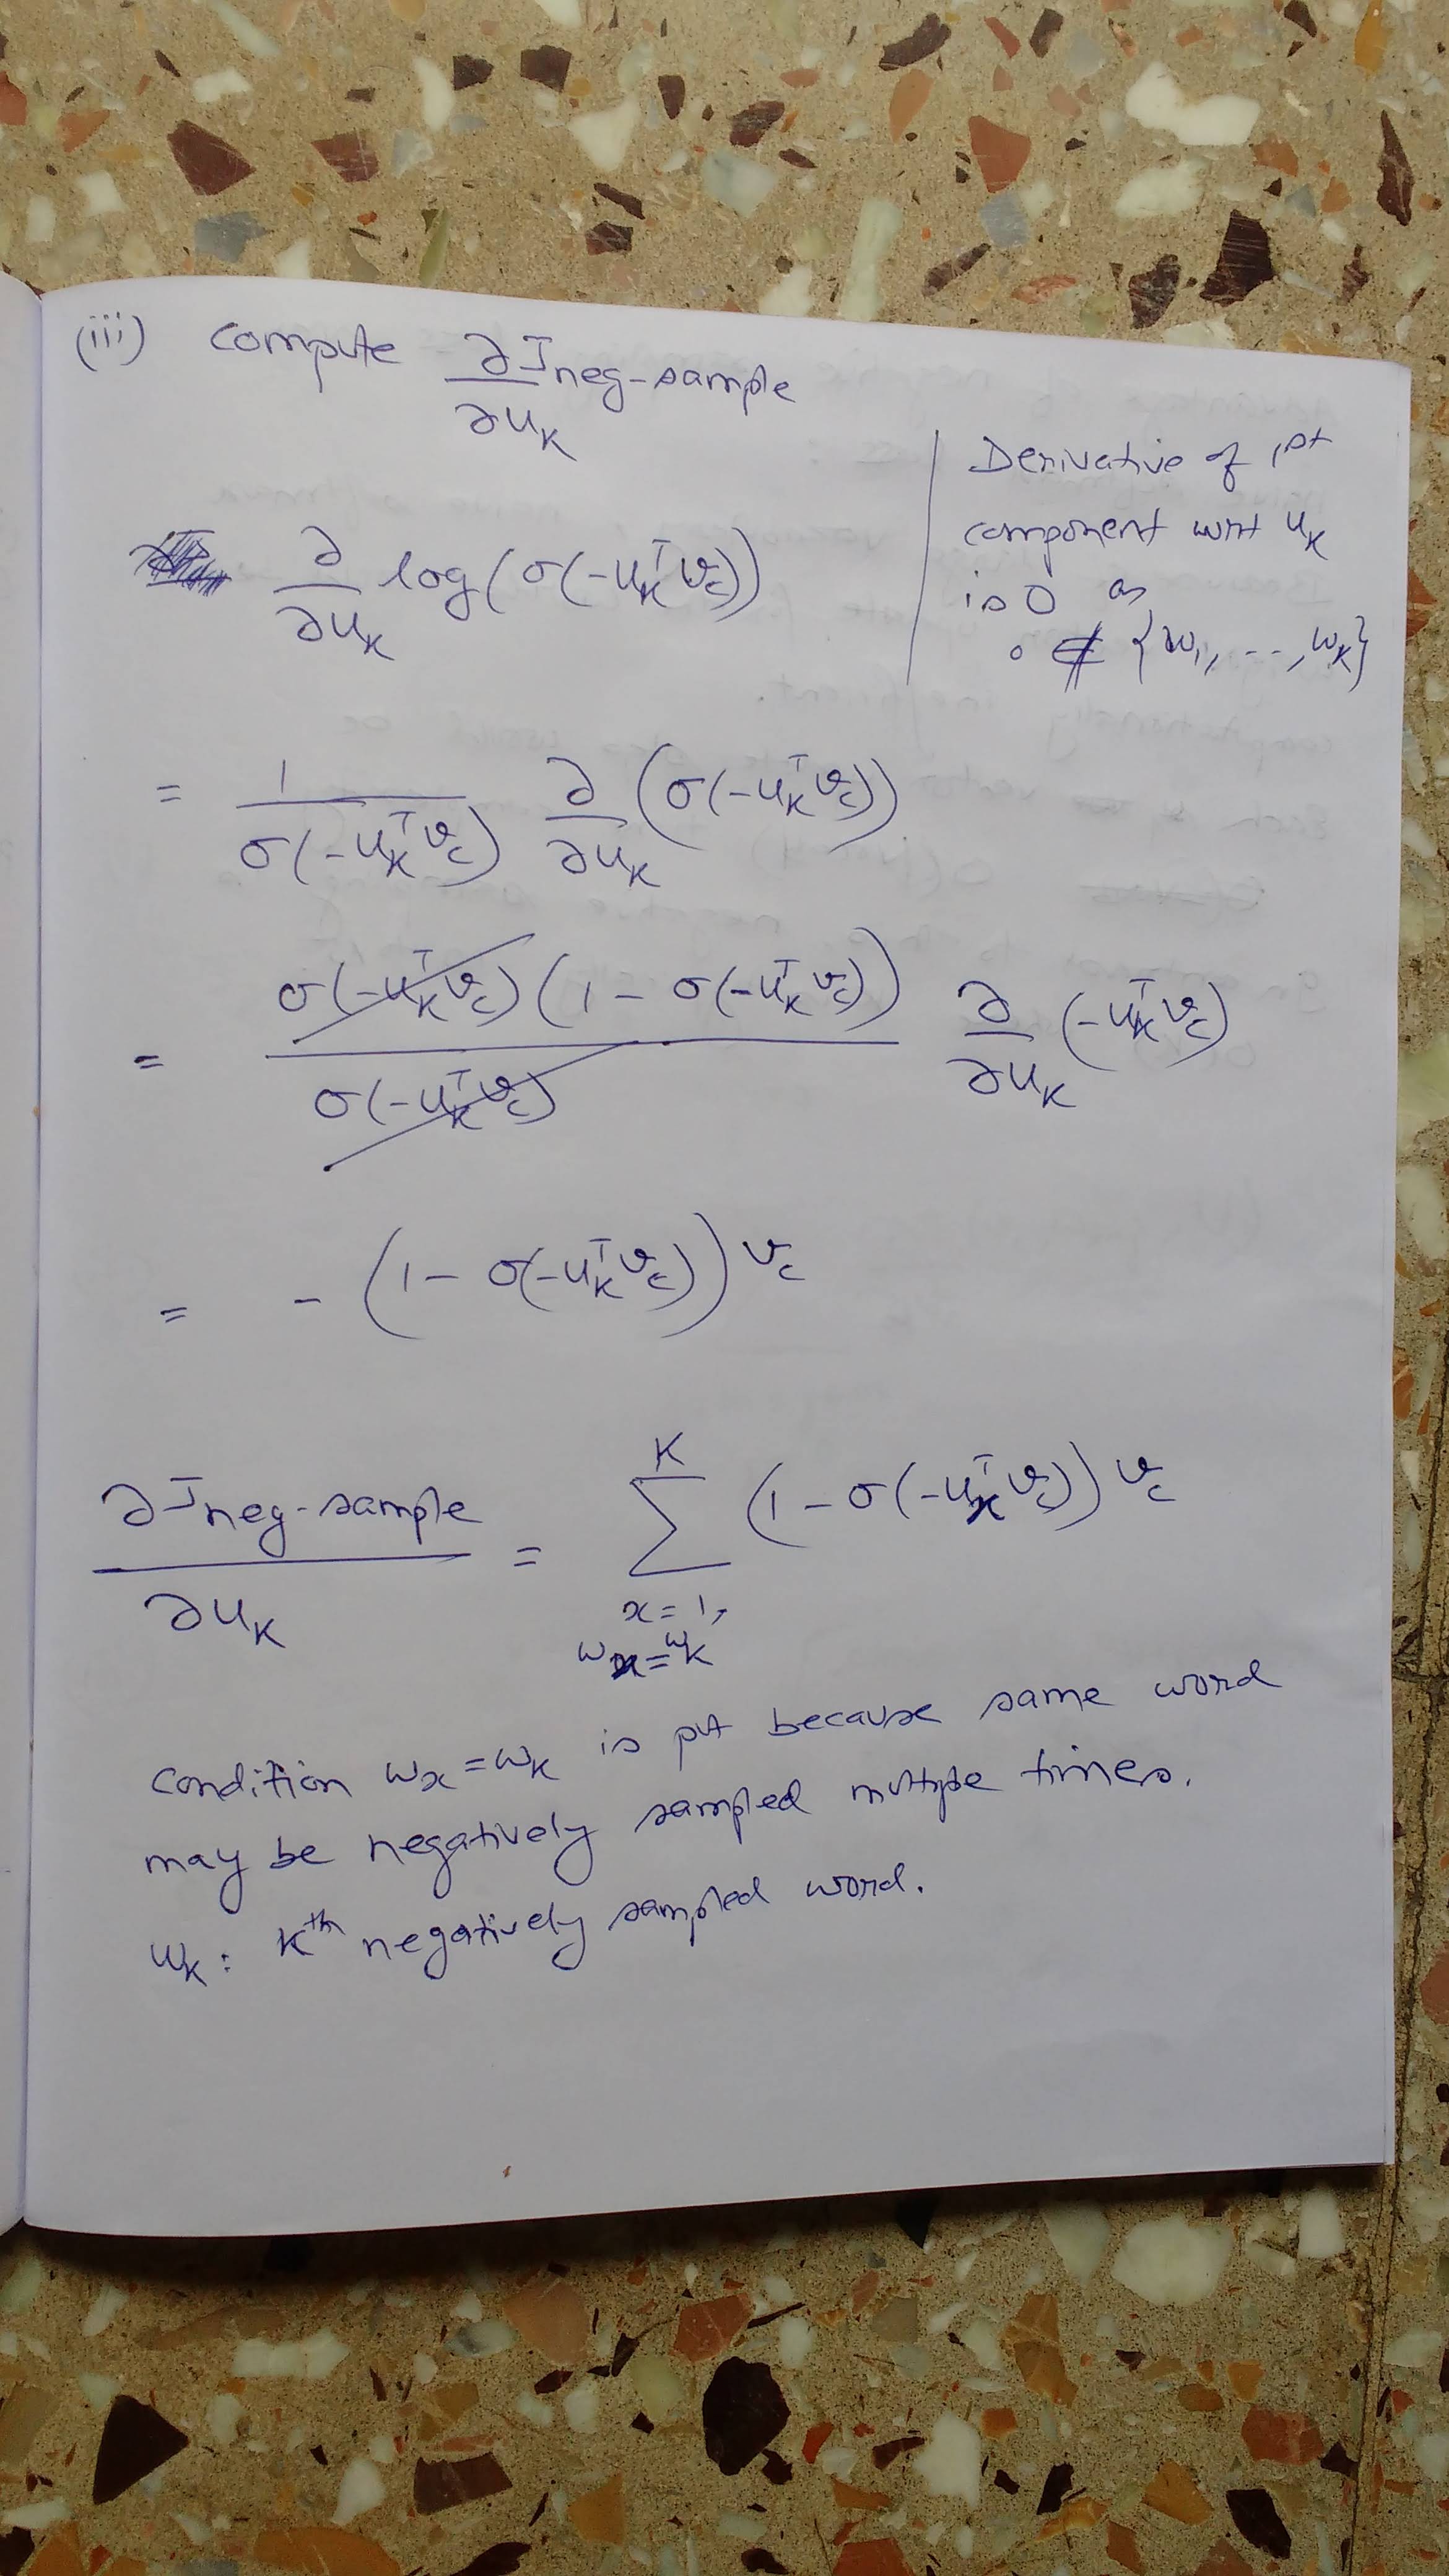 (iii) compute ∂J_neg-sample / ∂u_K
∂/∂u_K log(σ(-u_K^T v_c))
Derivative of 1st
component wrt u_K
is 0 as
o ∉ {w_1, ..., w_K}
= 1/σ(-u_K^T v_c) ∂/∂u_K (σ(-u_K^T v_c))
= σ(-u_K^T v_c)(1 - σ(-u_K^T v_c)) / σ(-u_K^T v_c) ∂/∂u_K (-u_K^T v_c)
= - (1 - σ(-u_K^T v_c)) v_c
∂J_neg-sample / ∂u_K = Σ_{x=1, w_x=w_K}^{K} (1 - σ(-u_x^T v_c)) v_c
Condition w_x = w_K is put because same word
may be negatively sampled multiple times.
w_K : K^th negatively sampled word.